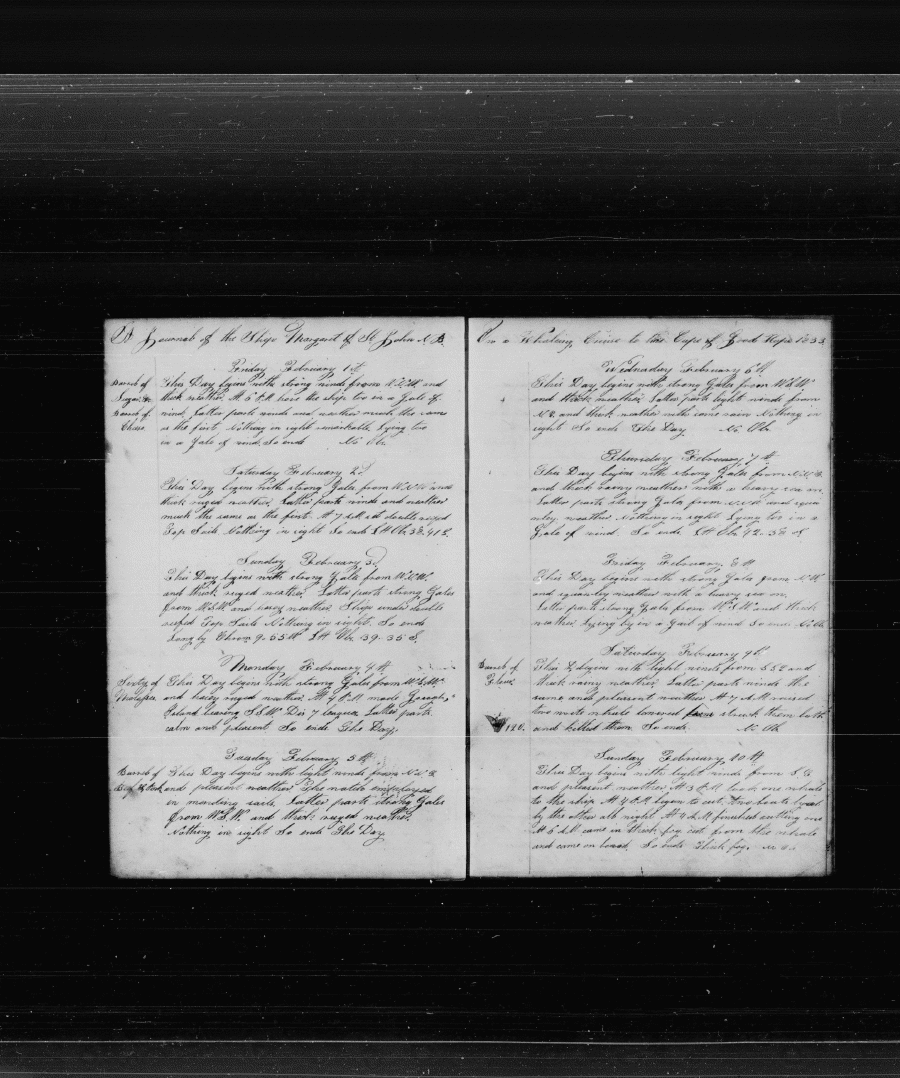 A Journal of the Ship Margaret of St John N B
Friday February 1st
Barrel of
Sugar &
Barrel of
Cheese
This Day begins with strong winds from N.N.W. and
thick weather. At 6 P.M. hove the ship too in a Gale of
wind, Latter parts winds and weather much the same
as the first. Nothing in sight remarkable. Lying too
in a Gale of wind. So ends No Ob.
Saturday February 2d
This Day begins with strong Gales from and
thick ruged weather. Latter parts winds and weather
much the same as the first. At 7 A.M. set double reefed
Top Sails. Nothing in sight So ends Lt Ob. 38. 41 S.
Sunday February 3d
This Day begins with strong Gales from
and thick ruged weather. Latter parts strong Gales
from W.S.W. and rainy weather. Ship under double
reefed Top Sails Nothing in sight. So ends
Long by Chrom 9. 55 W Lt Ob. 39. 35 S.
Monday February 4th
of
Molasses
This Day begins with strong Gales from W.S.W.
and hazy ruged weather. At 4 P.M. made Goughs
Island bearing S.S.W. Dis 7 leagues. Latter parts
calm and pleasant. So ends This Day.
Tuesday February 5th
Barrel of
Beef & Pork
This Day begins with light winds from
and pleasant weather. The watch employed
in mending sails. Latter parts strong Gales
from W.S.W. and thick ruged weather.
Nothing in sight So ends This Day
On a Whaling Cruise to the Cape of Good Hope 1833
Wednesday February 6th
This Day begins with strong Gales from W.S.W.
and thick weather. Latter parts light winds from
N.E. and thick weather with some rain Nothing in
sight So ends This Day No Ob.
Thursday February 7th
This Day begins with strong Gales from
and thick rainy weather with a heavy sea on.
Latter parts strong Gales from and squa
lley weather. Nothing in sight Lying too in a
Gale of wind. So ends Lt Ob 42 - 38 S
Friday February 8th
This Day begins with strong Gales from N.W.
and squalley weather with a heavy sea on.
Latter parts strong Gales from W.S.W. and thick
weather lying by in a Gail of wind So ends No Ob.
Saturday February 9th
Barrel of
Flour
This D begins with light winds from and
thick rainy weather. Latter parts winds the
same and pleasant weather. At 7 A.M. raised
two whales lowered struck them both
120.
and killed them So ends. No Ob.
Sunday February 10th
This Day begins with light winds from S.E.
and pleasant weather. At 3 P.M. took one whale
to the ship. At 4 P.M. began to cut. Two boats layed
by the other all night. At 4 A.M. finished cutting one
At 6 A.M. came in thick fog cut from the whale
and came on board. So ends Thick fog. No Ob